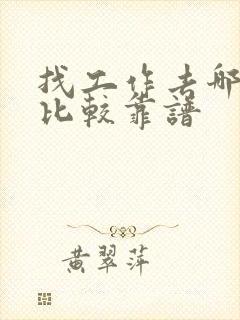 找工作去哪
比较靠譜
黄翠萍